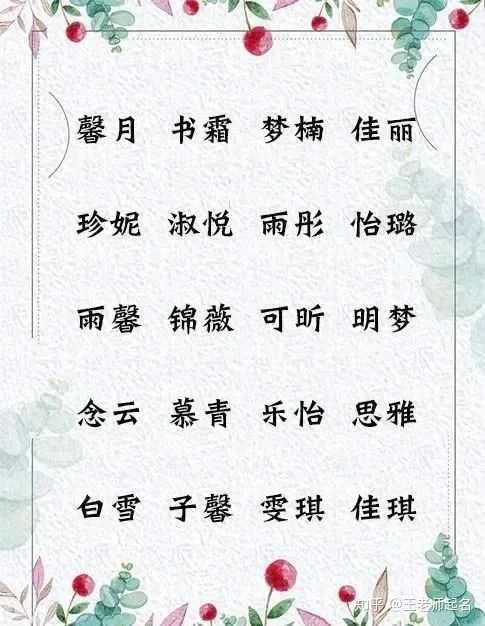 馨月 书霜 梦楠 佳丽
珍妮 淑悦 雨彤 怡璐
雨馨 锦薇 可昕 明梦
念云 慕青 乐怡 思雅
白雪 子馨 雯琪 佳琪
知乎 @王老师起名